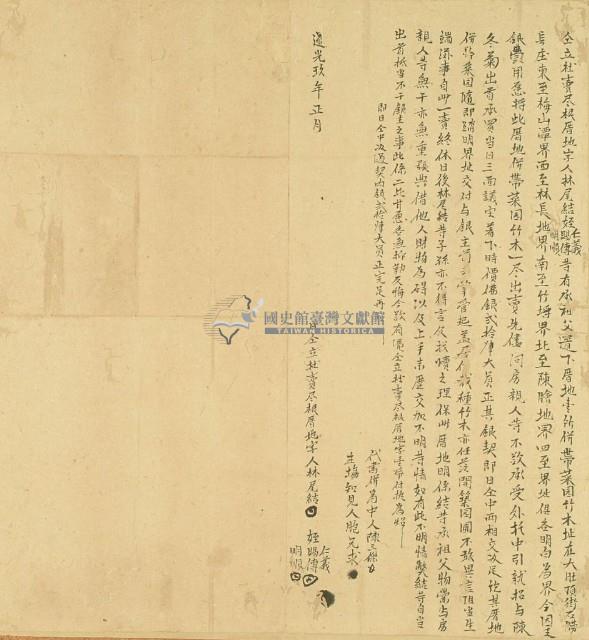 仝立杜賣尽根厝地字人林尾結姪賜傳
仁義
明順
等有承祖父置下厝地壹所併帶菜园竹木址在大肚頂街
長庄東至梅山潭界西至林長地界南至竹塆界北至陳膽地界四至界址俱各明白為界今因乏
銀費用愿將此厝地併帶菜园竹木一尽出賣先儘問房親人等不欲承受外托中引就招與陳
冬菊出首承買當日三面議定著下時價佛銀弍拾肆大員正其銀契即日仝中兩相交收足訖其厝地
併帶菜园隨即踏明界址交付与銀主前去掌管起蓋居住栽種竹木亦任從開築园圃不敢異言阻當生
端滋事自此一賣終休日後林尾結等子孫亦不得言及找贖之理保此厝地明係結等承祖父物業与房
親人等無干亦無重張典借他人財物為碍以及上手來歷交加不明等情如有此不明情弊結等自當
出首抵當不干銀主之事此係二比甘愿各無抑勒反悔今欲有憑仝立杜賣尽根厝地字壹紙付執為炤
即日仝中收過契內銀弍拾肆大員正完足再炤
代書併為中人陳
在場知見人胞兄求
道光玖年正月
日仝立杜賣尽根厝地字人林尾結
姪賜傳
仁義
明順
國史館臺灣文獻館
TAIWAN HISTORICA